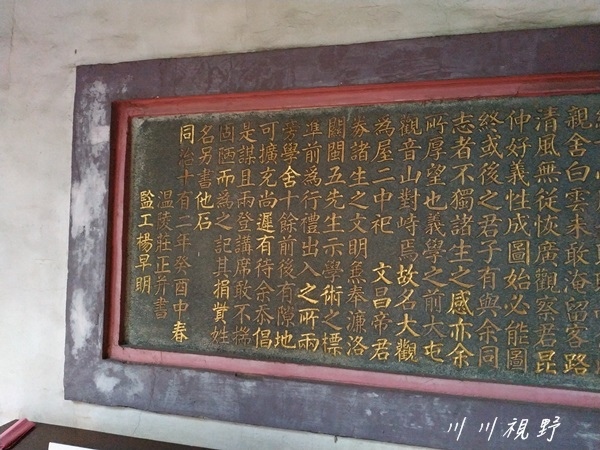 親舍白雲未敢淹留客路
清風無從恢廣觀察君昆
仲好義性成圖始必能圖
終或後之君子有與余同
志者不獨諸生之感亦余
所厚望也義學之前大屯
觀音山對峙焉故名大觀
為屋二中祀 文昌帝君
券諸生之文明焉奉濂洛
關閩五先生示學術之標
準前為行禮出入之所兩
旁學舍十餘前後有隙地
可擴充尚遲有待余忝倡
是謀且兩登講席敢不揣
固陋而為之記其捐貲姓
名另書他石
同治十有二年癸酉中春
溫陵莊正并書
監工楊早明
川川視野